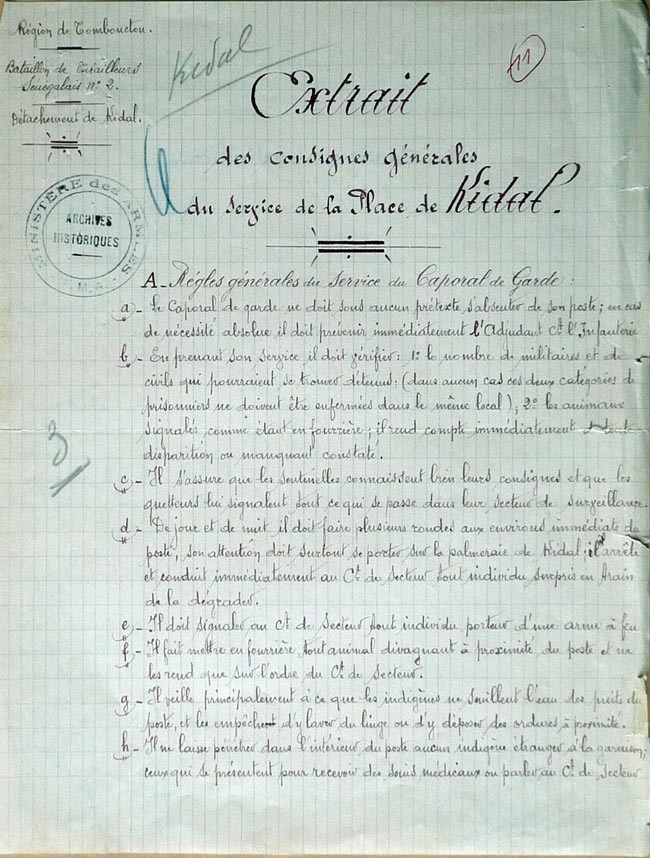 Région de Tombouctou.
Bataillon de Tirailleurs
Sénégalais nº 2.
Détachement de Kidal.
Kidal
11
Extrait
des consignes générales
du service de la Place de Kidal.
MINISTÈRE des ARMÉES
ARCHIVES
HISTORIQUES
E.M.A.
A - Régles générales du Service du Caporal de Garde :
a - Le Caporal de garde ne doit sous aucun prétexte s'absenter de son poste ; en cas
de nécessité absolue il doit prévenir immédiatement l'Adjudant Ct l'Infanterie
b - En prenant son service il doit vérifier : 1º le nombre de militaires et de
civils qui pourraient se trouver détenus : (dans aucun cas ces deux catégories de
prisonniers ne doivent être enfermées dans le même local) ; 2º les animaux
signalés comme étant en fourrière ; il rend compte immédiatement toute
disparition ou manquant constaté.
3
c - Il s'assure que les sentinelles connaissent bien leurs consignes et que les
guetteurs lui signalent tout ce qui se passe dans leur secteur de surveillance.
d - De jour et de nuit il doit faire plusieurs rondes aux environs immédiats du
poste, son attention doit surtout se porter sur la palmeraie de Kidal ; il arrête
et conduit immédiatement au Ct de Secteur tout individu surpris en train
de la dégrader.
e - Il doit signaler au Ct de Secteur tout individu porteur d'une arme à feu
f - Il fait mettre en fourrière tout animal divaguant à proximité du poste et ne
les rend que sur l'ordre du Ct de Secteur.
g - Il veille principalement à ce que les indigènes ne souillent l'eau des puits du
poste, et les empêchent d'y laver du linge ou d'y déposer des ordures à proximité.
h - Il ne laisse pénétrer dans l'intérieur du poste aucun indigène étranger à la garnison;
ceux qui se présentent pour recevoir des soins médicaux ou parler au Ct de Secteur